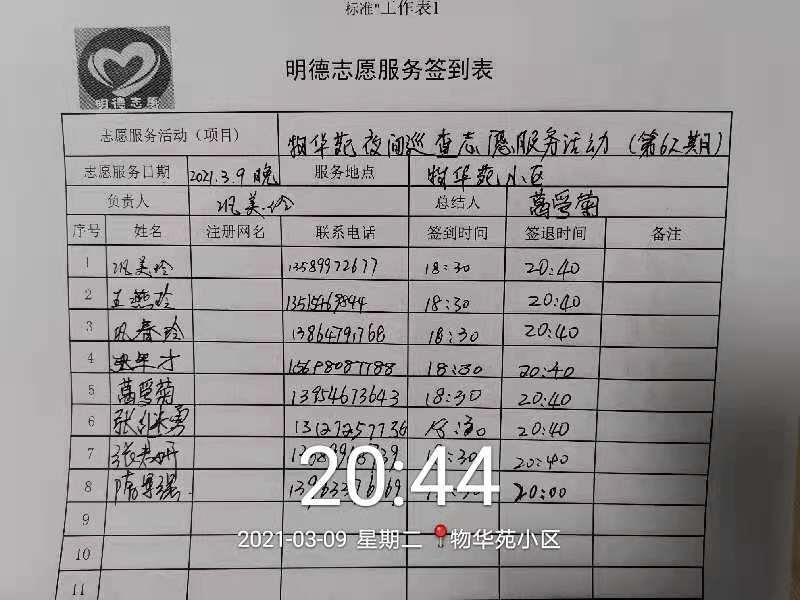 标准"工作表1
明德志愿
明德志愿服务签到表
志愿服务活动（项目） 物华苑夜间巡查志愿服务活动（第62期）
志愿服务日期 2021.3.9晚 服务地点 物华苑小区
负责人 巩美玲 总结人 葛爱菊
序号 姓名 注册网名 联系电话 签到时间 签退时间 备注
1 巩美玲 13589972677 18:30 20:40
2 王燕玲 18:30 20:40
3 巩春玲 13864791768 18:30 20:40
4 年才 15698087788 18:30 20:40
5 葛爱菊 13954673643 18:30 20:40
6 张 勇 13127257736 18:30 20:40
7 张 妍 18:30 20:40
8 隋 20:00
9
10
11
20:44
2021-03-09 星期二 物华苑小区